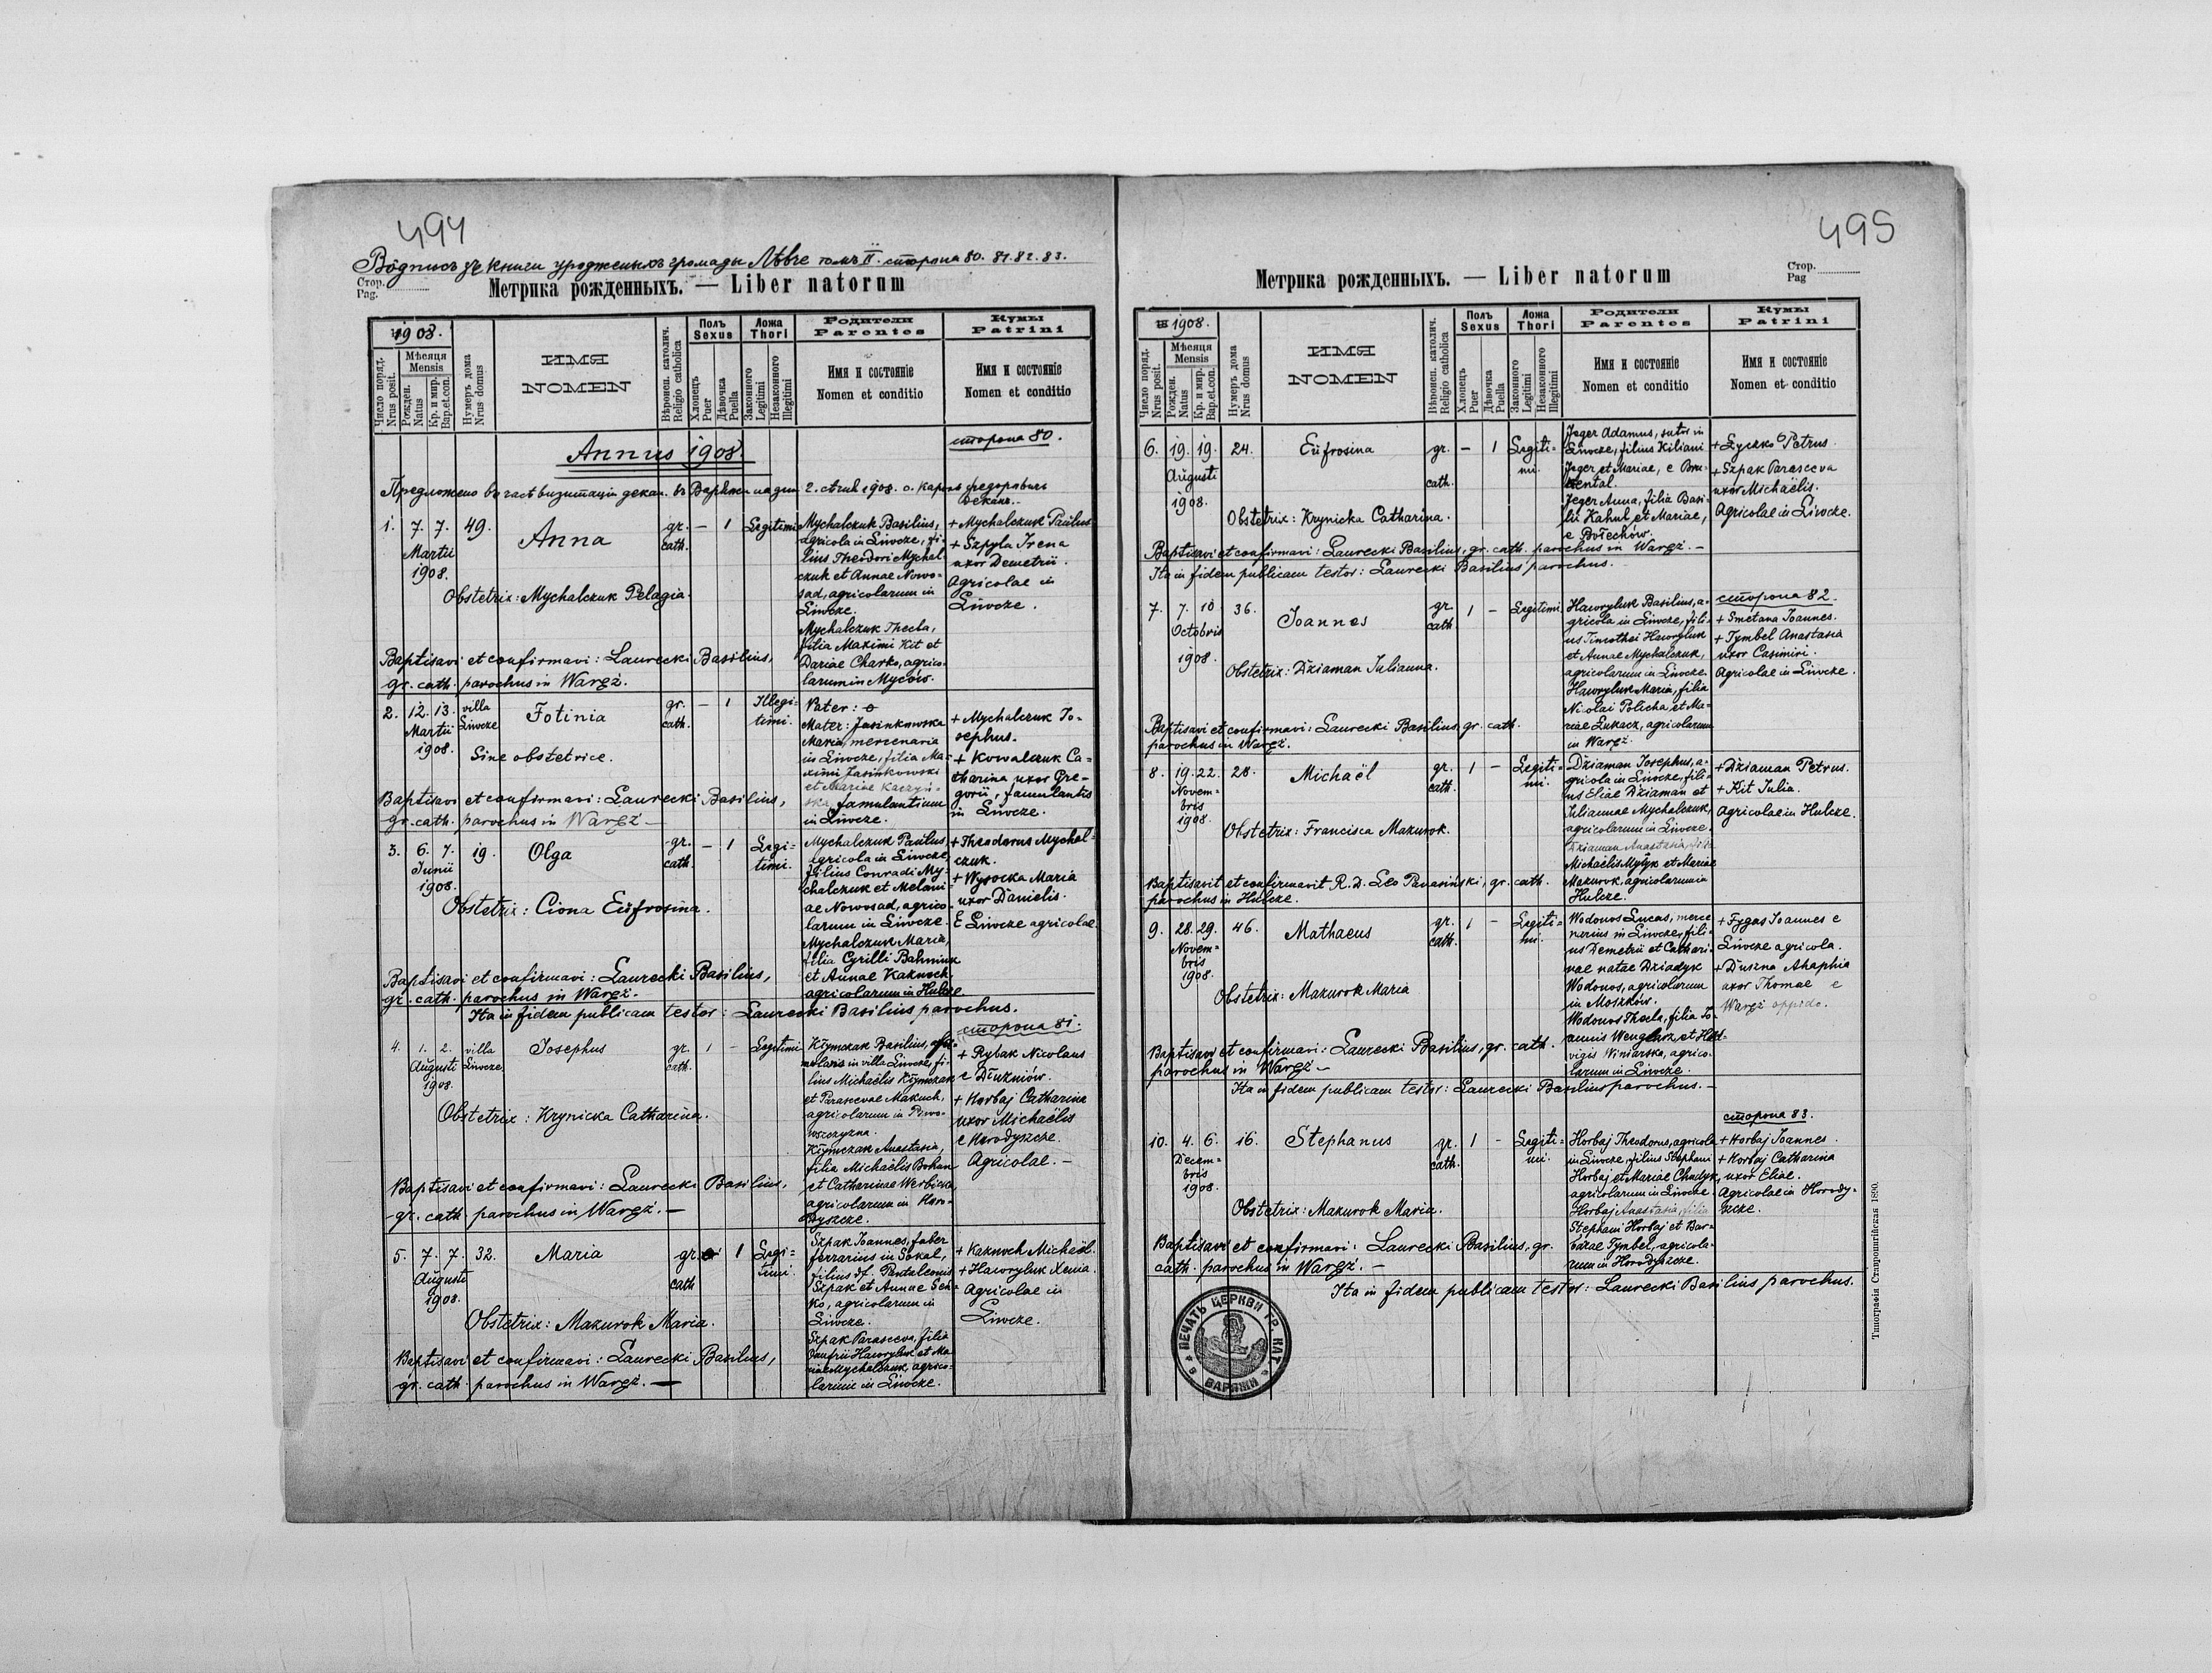 494
Водпись зъ книги урожденыхъ громады Лѣвче томъ II. сторона 80. 81. 82. 83.
Стор.
Pag.
Метрика рожденныхъ. — Liber natorum
1908.
Число поряд.
Nrus posit.
Мѣсяця
Mensis
Рожден.
Natus
Кр. и мир.
Bap.et.con.
Нумеръ дома
Nrus domus
ИМЯ
NOMEN
Вѣроисп. католич.
Religio catholica
Полъ
Sexus
Хлопецъ
Puer
Дѣвочка
Puella
Ложа
Thori
Законного
Legitimi
Незаконного
Illegitimi
Родители
Parentes
Имя и состоянiе
Nomen et conditio
Кумы
Patrini
Имя и состоянiе
Nomen et conditio
сторона 80.
Annus 1908.
2. 1908. о.
1. 7. 7. 49. Anna gr. — 1 Legitimi
cath.
Martii
1908.
Obstetrix: Mychalczuk Pelagia.
Mychalczuk Basilius,
agricola in Liwcze, fi-
lius Theodori Mychal
czuk et Annae Nowo-
sad, agricolarum in
Liwcze.
Mychalczuk Thecla,
filia Maximi Kit et
Dariae Charko, agrico-
larum in Myców.
+ Mychalczuk Paulus
+ Szpyla Irena
uxor Demetrii.
Agricolae in
Liwcze.
Baptisavi et confirmavi: Laurecki Basilius,
gr. cath. parochus in Waręż.
2. 12. 13. villa Liwcze Fotinia gr. — 1 Illegi-
cath. timi.
Martii
1908.
Sine obstetrice.
Pater: o
Mater: Jasinkowska
Maria, mercenaria
in Liwcze, filia Ma-
ximi Jasinkowski
et Mariae Kaczyń-
ska, famulantium
in Liwcze.
+ Mychalczuk Jo-
sephus.
+ Kowalczuk Ca-
tharina uxor Gre-
gorii, famulantis
in Liwcze.
Baptisavi et confirmavi: Laurecki Basilius,
gr. cath. parochus in Waręż —
3. 6. 7. 19. Olga gr. — 1 Legi-
cath. timi.
Junii
1908.
Obstetrix: Ciona Eufrosina.
Mychalczuk Paulus,
agricola in Liwcze,
filius Conradi My-
chalczuk et Melani-
ae Nowosad, agrico-
larum in Liwcze.
Mychalczuk Maria,
filia Cyrilli Bahniuk
et Annae Kaznoch,
agricolarum in Hulcze.
+ Theodorus Mychal-
czuk.
+ Wysocka Maria
uxor Danielis.
E Liwcze agricolae.
Baptisavi et confirmavi: Laurecki Basilius,
gr. cath. parochus in Waręż.
Ita in fidem publicam testor: Laurecki Basilius parochus.
сторона 81.
4. 1. 2. villa Liwcze. Josephus gr. 1 — Legitimi
cath.
Augusti
1908.
Obstetrix: Krynicka Catharina.
Klymczak Basilius,
in villa Liwcze, fi-
lius Michaëlis Klymczak
et Parascevae Makuch,
agricolarum in Piwo-
wszczyzna.
Klymczak Anastasia,
filia Michaëlis Bohan
et Catharinae Werbicka,
agricolarum in Horo-
dyszcze.
+ Rybak Nicolaus
e Dłużniów.
+ Horbaj Catharina
uxor Michaëlis
e Horodyszcze.
Agricolae. —
Baptisavi et confirmavi: Laurecki Basilius,
gr. cath. parochus in Waręż. —
5. 7. 7. 32. Maria gr. 1 Legi-
cath timi.
Augusti
1908.
Obstetrix: Mazurok Maria.
Szpak Joannes, faber
ferrarius in Sokal,
filius df. Pantaleonis
Szpak et Annae Sen-
ko, agricolarum in
Liwcze.
Szpak Parasceva, filia
Onufrii Hawryluk et Ma-
riae Mychalczuk, agrico-
larum in Liwcze.
+ Kaznoch Michaël.
+ Hawryluk Xenia.
Agricolae in
Liwcze.
Baptisavi et confirmavi: Laurecki Basilius,
gr. cath. parochus in Waręż. —
495
Метрика рожденныхъ. — Liber natorum
Стор.
Pag
1908.
Число поряд.
Nrus posit.
Мѣсяця
Mensis
Рожден.
Natus
Кр. и мир.
Bap.et.con.
Нумеръ дома
Nrus domus
ИМЯ
NOMEN
Вѣроисп. католич.
Religio catholica
Полъ
Sexus
Хлопецъ
Puer
Дѣвочка
Puella
Ложа
Thori
Законного
Legitimi
Незаконного
Illegitimi
Родители
Parentes
Имя и состоянiе
Nomen et conditio
Кумы
Patrini
Имя и состоянiе
Nomen et conditio
6. 19. 19. 24. Eufrosina gr. — 1 Legiti-
cath. mi.
Augusti
1908.
Obstetrix: Krynicka Catharina.
Jeger Adamus, sutor in
Liwcze, filius Kiliani
Jeger et Mariae, e Bru-
kental.
Jeger Anna, filia Basi-
lii Kahul et Mariae,
e Bołechów.
+ Łyczko Petrus.
+ Szpak Parasceva
uxor Michaëlis.
Agricolae in Liwcze.
Baptisavi et confirmavi: Laurecki Basilius, gr. cath. parochus in Waręż. —
Ita in fidem publicam testor: Laurecki Basilius parochus.
сторона 82.
7. 7. 10 36. Joannes gr. 1 — Legitimi
cath
Octobris
1908.
Obstetrix: Dziaman Julianna.
Hawryluk Basilius, a-
gricola in Liwcze, fili-
us Timothei Hawryluk
et Annae Mychalczuk,
agricolarum in Liwcze.
Hawryluk Maria, filia
Nicolai Policha et Ma-
riae Łukacz, agricolarum
in Waręż.
+ Smetana Joannes.
+ Tymbel Anastasia
uxor Casimiri.
Agricolae in Liwcze.
Baptisavi et confirmavi: Laurecki Basilius, gr. cath.
parochus in Waręż.
8. 19. 22. 28. Michaël gr. 1 — Legiti-
cath. mi.
Novem-
bris
1908.
Obstetrix: Francisca Mazurok.
Dziaman Josephus, a-
gricola in Liwcze, fili-
us Eliae Dziaman et
Juliannae Mychalczuk,
agricolarum in Liwcze.
Dziaman Anastasia, filia
Michaëlis Myłyk et Mariae
Mazurok, agricolarum in
Hulcze.
+ Dziaman Petrus.
+ Kit Julia.
Agricolae in Hulcze.
Baptisavit et confirmavit R. D. Leo Panasiński, gr. cath.
parochus in Hulcze.
9. 28. 29. 46. Mathaeus gr. 1 — Legiti-
cath. mi.
Novem-
bris
1908.
Obstetrix: Mazurok Maria
Wodonos Lucas, merce
narius in Liwcze, fili-
us Demetrii et Cathari-
nae natae Dziadyk
Wodonos, agricolarum
in Moszków.
Wodonos Thecla, filia Jo-
annis Wenglarz et Hed-
vigis Winiarska, agrico-
larum in Liwcze.
+ Fygas Joannes e
Liwcze agricola.
+ Duszna Ahaphia
uxor Thomae e
Waręż oppido.
Baptisavi et confirmavi: Laurecki Basilius, gr. cath.
parochus in Waręż —
Ita in fidem publicam testor: Laurecki Basilius parochus. —
сторона 83.
10. 4. 6. 16. Stephanus gr. 1 — Legiti-
cath. mi.
Decem-
bris
1908.
Obstetrix: Mazurok Maria.
Horbaj Theodorus, agricola
in Liwcze, filius Stephani
Horbaj et Mariae Chudyk,
agricolarum in Liwcze.
Horbaj Anastasia, filia
Stephani Horbaj et Bar-
barae Tymbel, agricola-
rum in Horodyszcze.
+ Horbaj Joannes.
+ Horbaj Catharina
uxor Eliae.
Agricolae in Horody-
szcze.
Baptisavi et confirmavi: Laurecki Basilius, gr.
cath. parochus in Waręż. —
Ita in fidem publicam testor: Laurecki Basilius parochus.
ПЕЧАТЬ ЦЕРКВИ ГР. КАТ. В ВАРЯЖИ
Типографія Ставропигійская 1890.